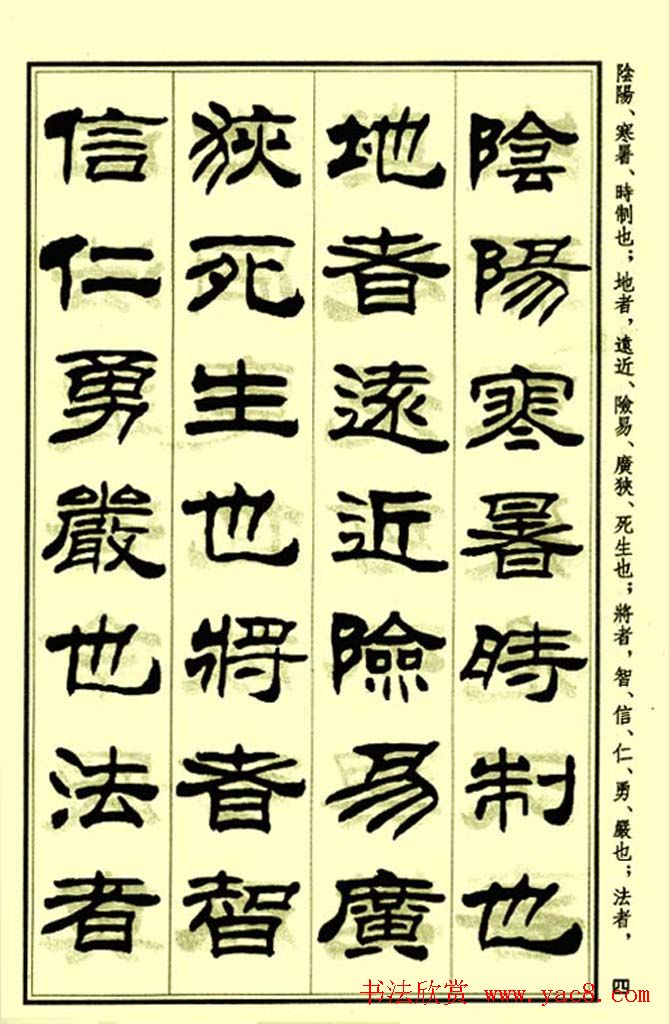 陰陽寒暑時制也
地者遠近險易廣
狹死生也將者智
信仁勇嚴也法者
陰陽、寒暑、時制也；地者，遠近、險易、廣狹、死生也；將者，智、信、仁、勇、嚴也；法者，
四
书法欣赏 www.yac8.com